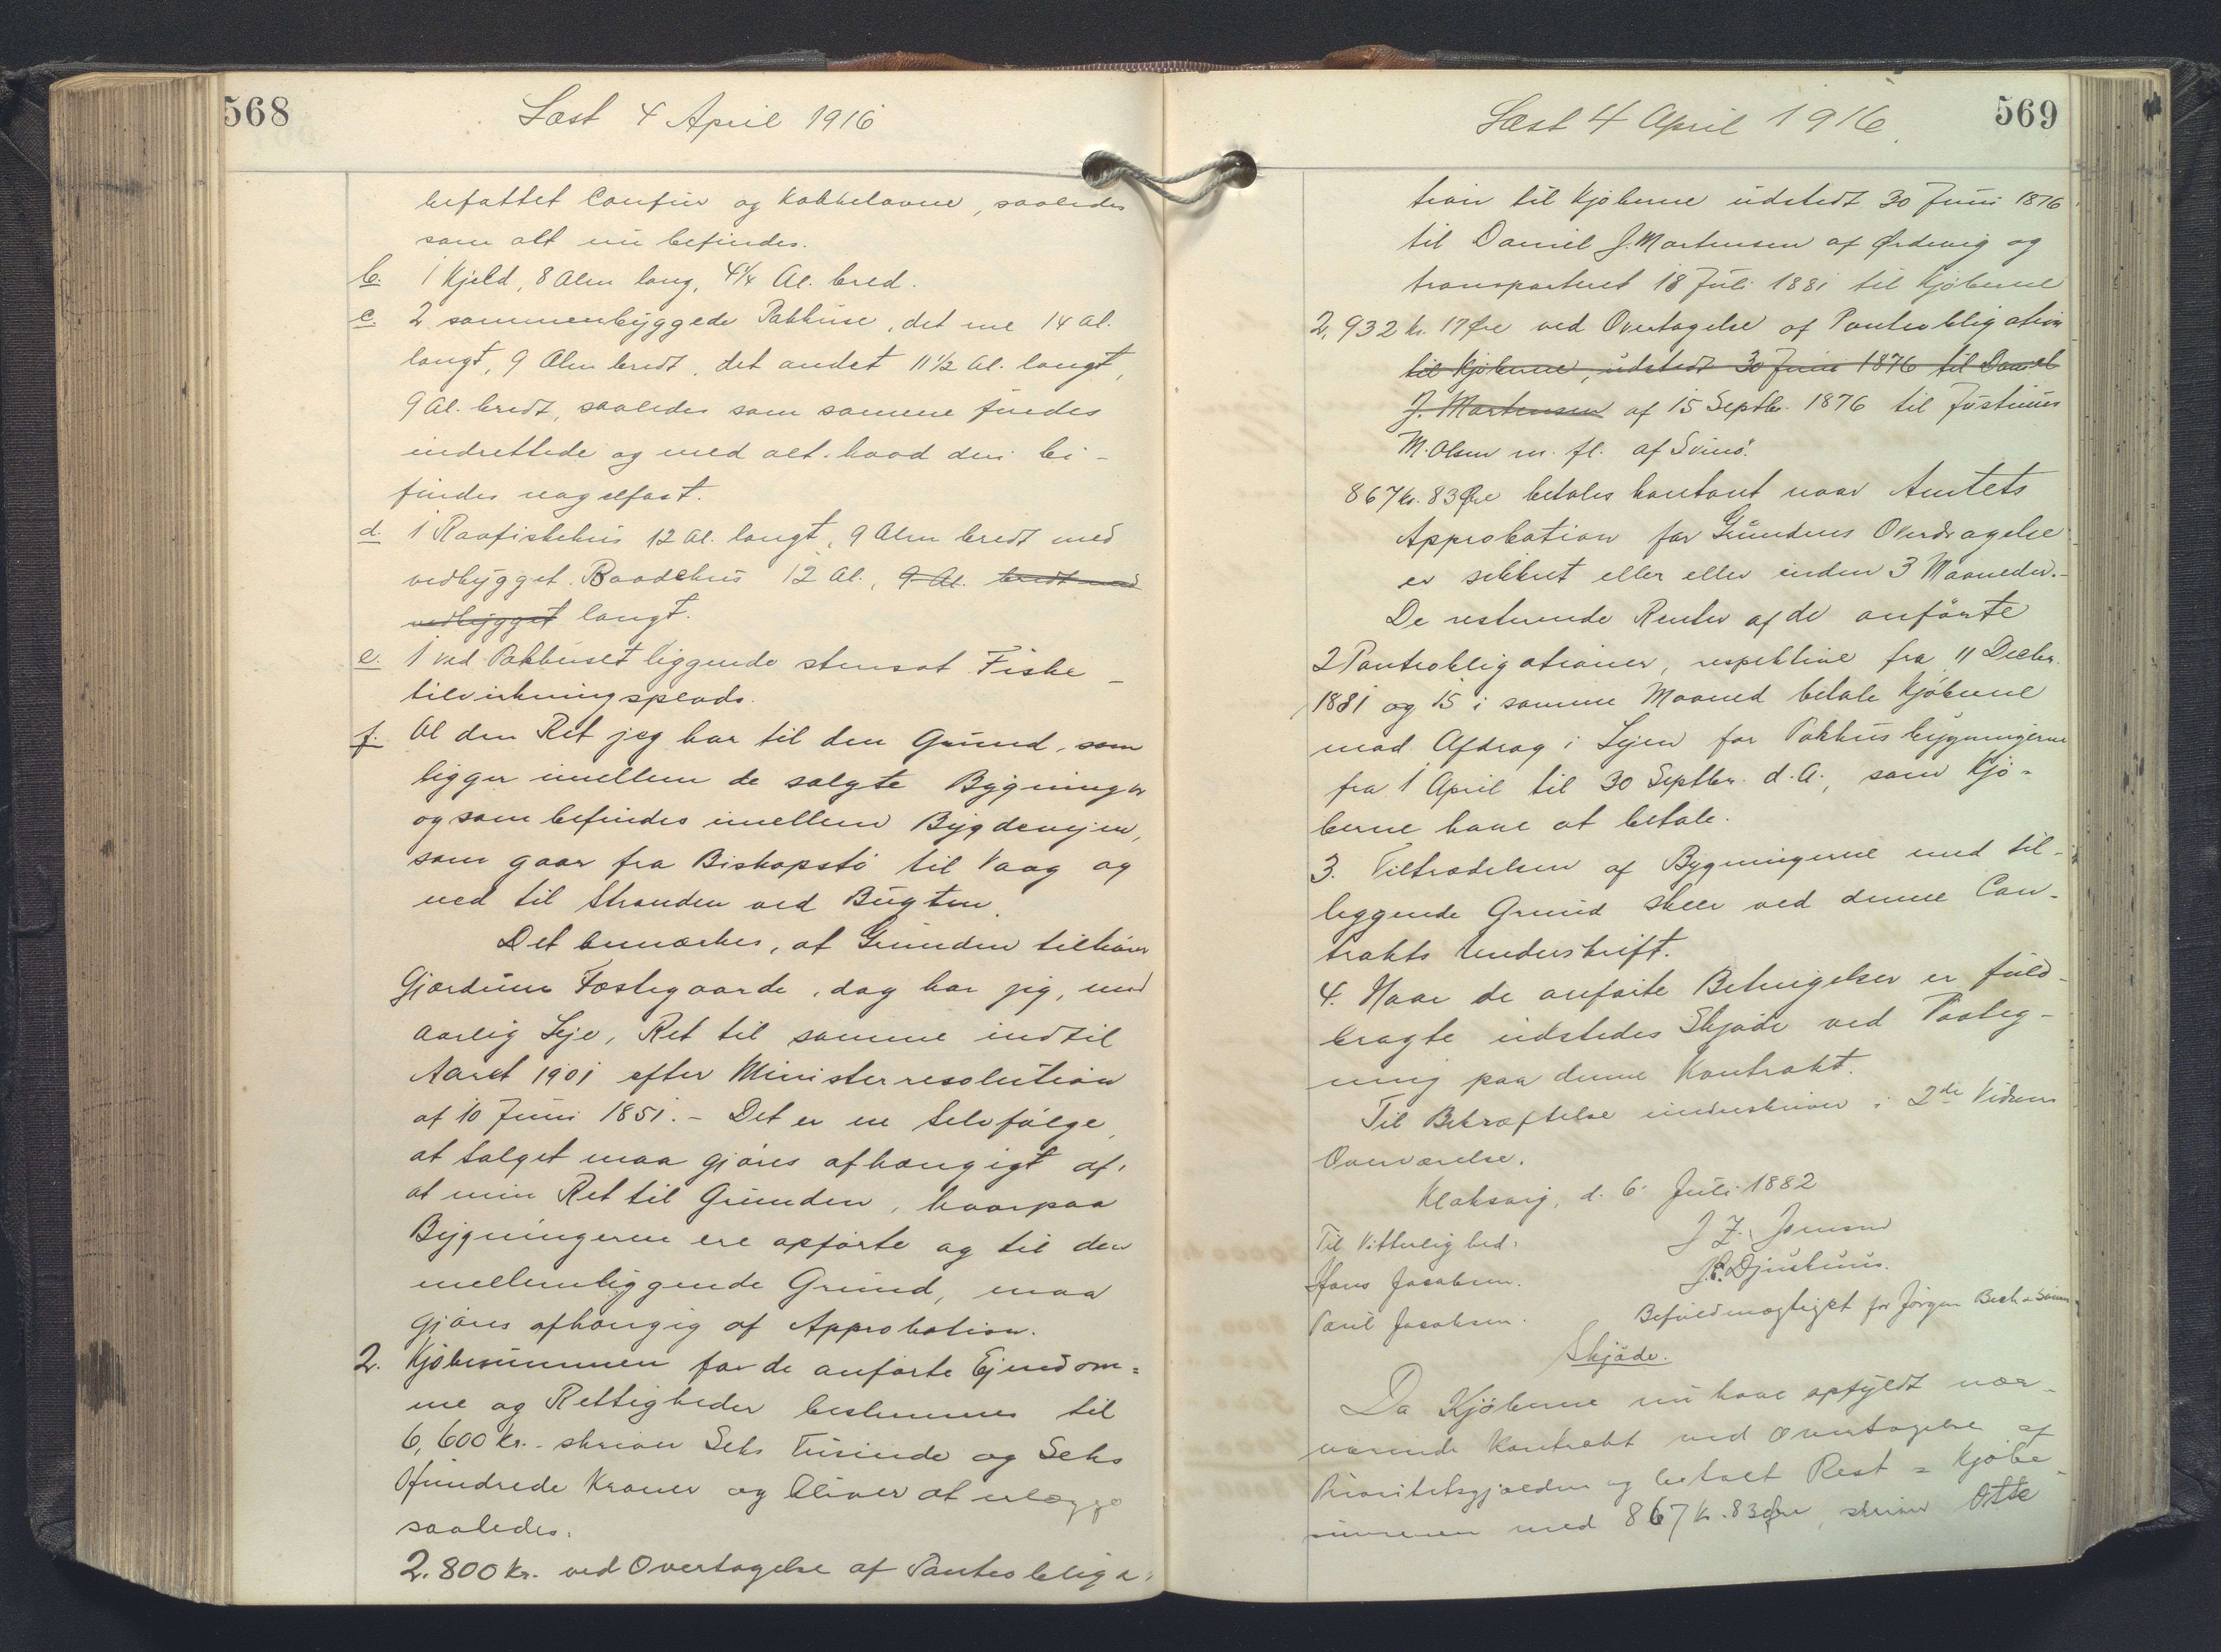 568
Læst 4 April 1916
befattet Comfur og Kakkelovne, saaledes
som alt nu befindes.
b. 1 Kjeld, 8 Alen lang, 4¼ Al. bred.
c. 2 sammenbyggede Pakhuse, det ene 14 Al.
langt, 9 Alen bredt, det andet 11½ Al. langt,
9 Al. bredt, saaledes som samme findes
indrettede og med alt hvad deri be-
findes nagelfast.
d. 1 Raafiskehus 12 Al. langt, 9 Alen bredt med
vedbygget Baadehus 12 Al., 9 Al. bredt med
vedbygget langt.
e. 1 ved Pakhuset liggende stensat Fiske-
tilvirkningsplads.
f. Al den Ret jeg har til den Grund, som
ligger imellem de solgte Bygninger
og som befindes imellem Bygdevejen,
som gaar fra Biskopstö til Vaag og
ned til Stranden ved Bugten.
Det bemærkes, at Grunden tilhører
Gjærdume Fæstegaarde, dog har jeg, med
aarlig Leje, Ret til samme indtil
Aaret 1901 efter Ministerresolution
af 10 Juni 1851. - Det er en Selvfølge,
at Salget maa gjøres afhængigt af,
at min Ret til Grunden, hvorpaa
Bygningerne ere opførte og til den
mellemliggende Grund, maa
gjøres afhængig af Approbation.
2. Kjøbesummen for de anførte Ejendom=
me og Rettigheder bestemmes til
6,600 Kr. - skriver Seks Tusinde og Seks
Hundrede Kroner og bliver at erlægge
saaledes:
2.800 Kr. ved Overtagelse af Panteobliga-
569
Læst 4 April 1916.
tion til Kjøberne udstedt 30 Juni 1876
til Daniel J. Mortensen af Ørdevig og
transporteret 18 Juli 1881 til Kjøberne
2,932 Kr. 17 Øre ved Overtagelse af Panteobligation
til Kjøberne, udstedt 30 Juni 1876 til Daniel
J. Mortensen af 15 Septbr. 1876 til Justinus
M. Olsen m. fl. af Svinö.
867 Kr. 83 Øre betales kontant naar Amtets
Approbation for Grundens Overdragelse
er sikkret eller eller inden 3 Maaneder.-
De resterende Renter af de anførte
2 Panteobligationer, respektive fra 11 Decbr.
1881 og 15 i samme Maaned betale Kjøberne
mod Afdrag i Lejen for Pakhusbygningerne
fra 1 April til 30 Septbr. d.A., som Kjø-
berne have at betale.
3. Tiltrædelsen af Bygningerne med til-
liggende Grund skeer ved denne Con-
trakts Underskrift.
4. Naar de anførte Betingelser er fuld-
bragte udstedes Skjøde ved Paateg-
ning paa denne Kontrakt.
Til Bekræftelse underskriver i 2de Vidners
Overværelse.
Klaksvig, d. 6 Juli 1882
Til Vitterlighed:
J. F. Joensen
Hans Jacobsen.
J.P. Djurhuus.
Poul Jacobsen.
Befuldmægtiget for Jørgen Bech & Sønner
Skjøde.
Da Kjøberne nu have opfyldt nær-
værende Kontrakt ved Overtagelse af
Prioritetsgjælden og betalt Rest = Kjøbe-
summen med 867 Kr. 83 Øre, skriver Otte